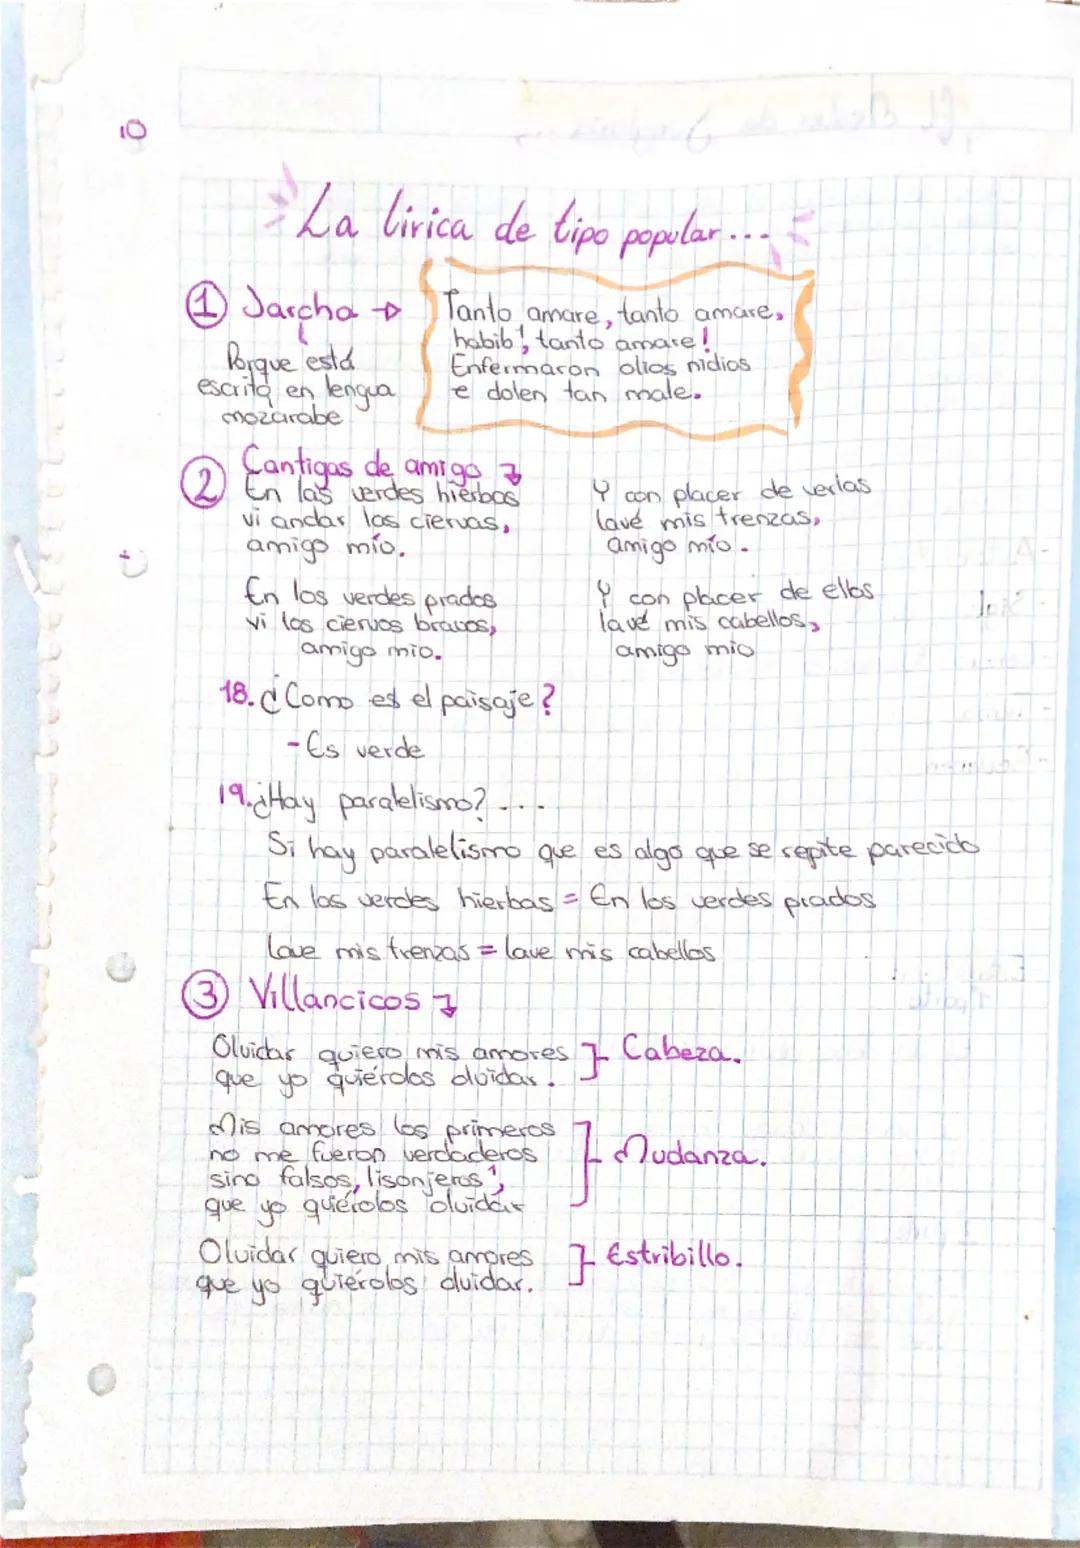 10
La lirica de tipo popular...
① Jarcha →
Porque está
escrita en lengua
mozarabe
Tanto amare, tanto amare,
habib¹, tanto amare!
Enfermaron olios nidios
e dolen tan male.
② Cantigas de amigo
En las verdes hierbas
vi andar las ciervas,
amigo mío.
En los verdes prados
vi los ciervos bravos,
amigo mio.
Y con placer de verlas
lavé mis trenzas,
amigo mío.
Y con placer de ellos
lavé mis cabellos,
amigo mio
18. ¿Como es el paisaje?
- Es verde
19. ¿Hay paralelismo? ...
Si hay paralelismo que es algo que se repite parecido
En las verdes hierbas = En los verdes prados
lave mis trenzas = lave mis cabellos
③ Villancicos
Olvidar quiero mis amores
que yo quiérolos olvidar.
Cabeza.
Mis amores los primeros
no me fueron verdaderos
sino falsos, lisonjeros¹,
que yo quiérolos olvidar
Mudanza.
Olvidar quiero mis amores
que yo quiérolos olvidar.
Estribillo.